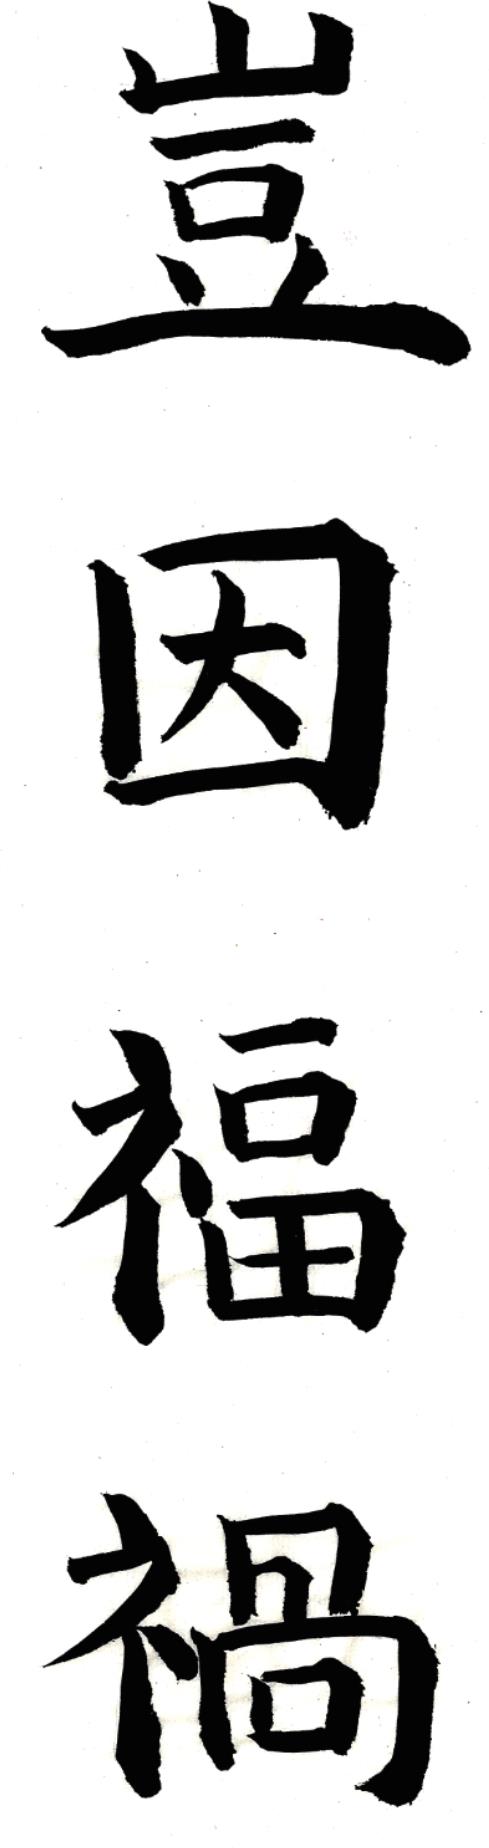 豈因福禍